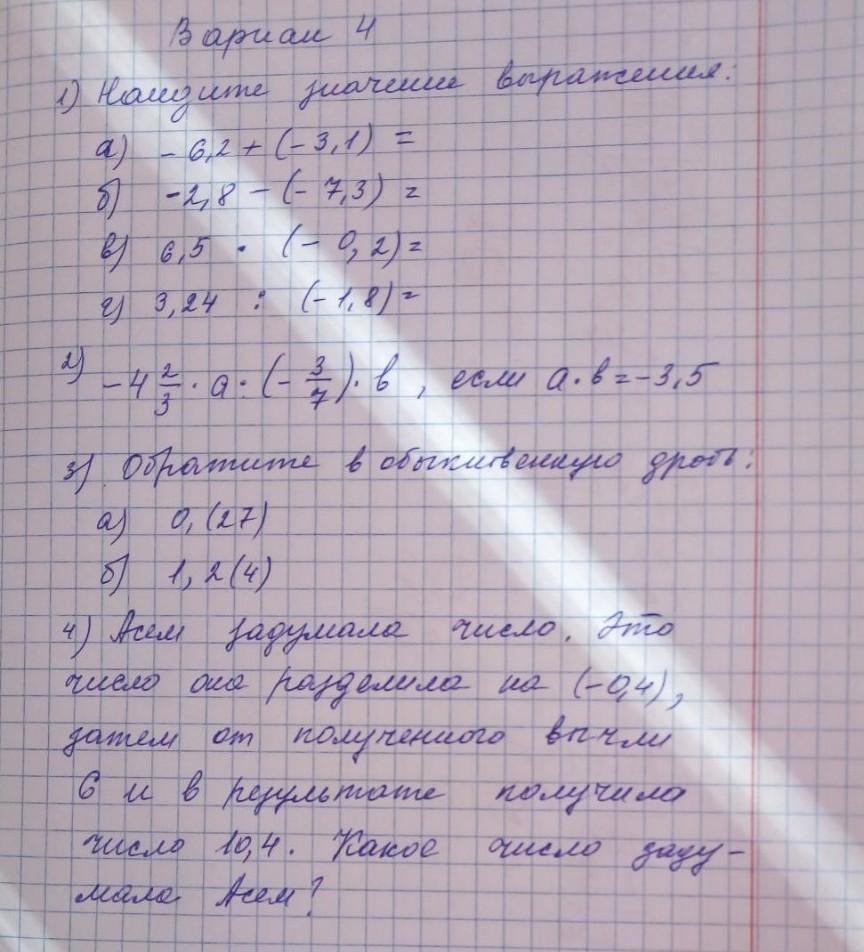 Вариан 4
1) Найдите значение выражения:
а) -6,2 + (-3,1) =
б) -2,8 - (-7,3) =
в) 6,5 · (-0,2) =
г) 3,24 : (-1,8) =
2) -4 2/3 · a : (-3/7) · b, если a · b = -3,5
3) Обратите в обыкновенную дробь:
а) 0,(27)
б) 1,2(4)
4) Асем задумала число. Это
число она разделила на (-0,4),
затем от полученного вычли
6 и в результате получила
число 10,4. Какое число заду-
мала Асем?